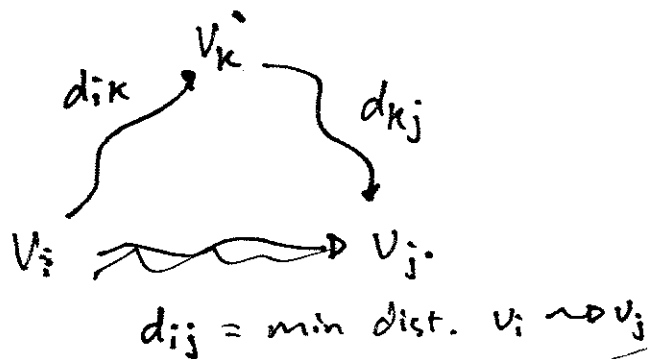 V_k
d_ik
d_kj
V_i
V_j.
d_ij = min dist. v_i ⇝ v_j